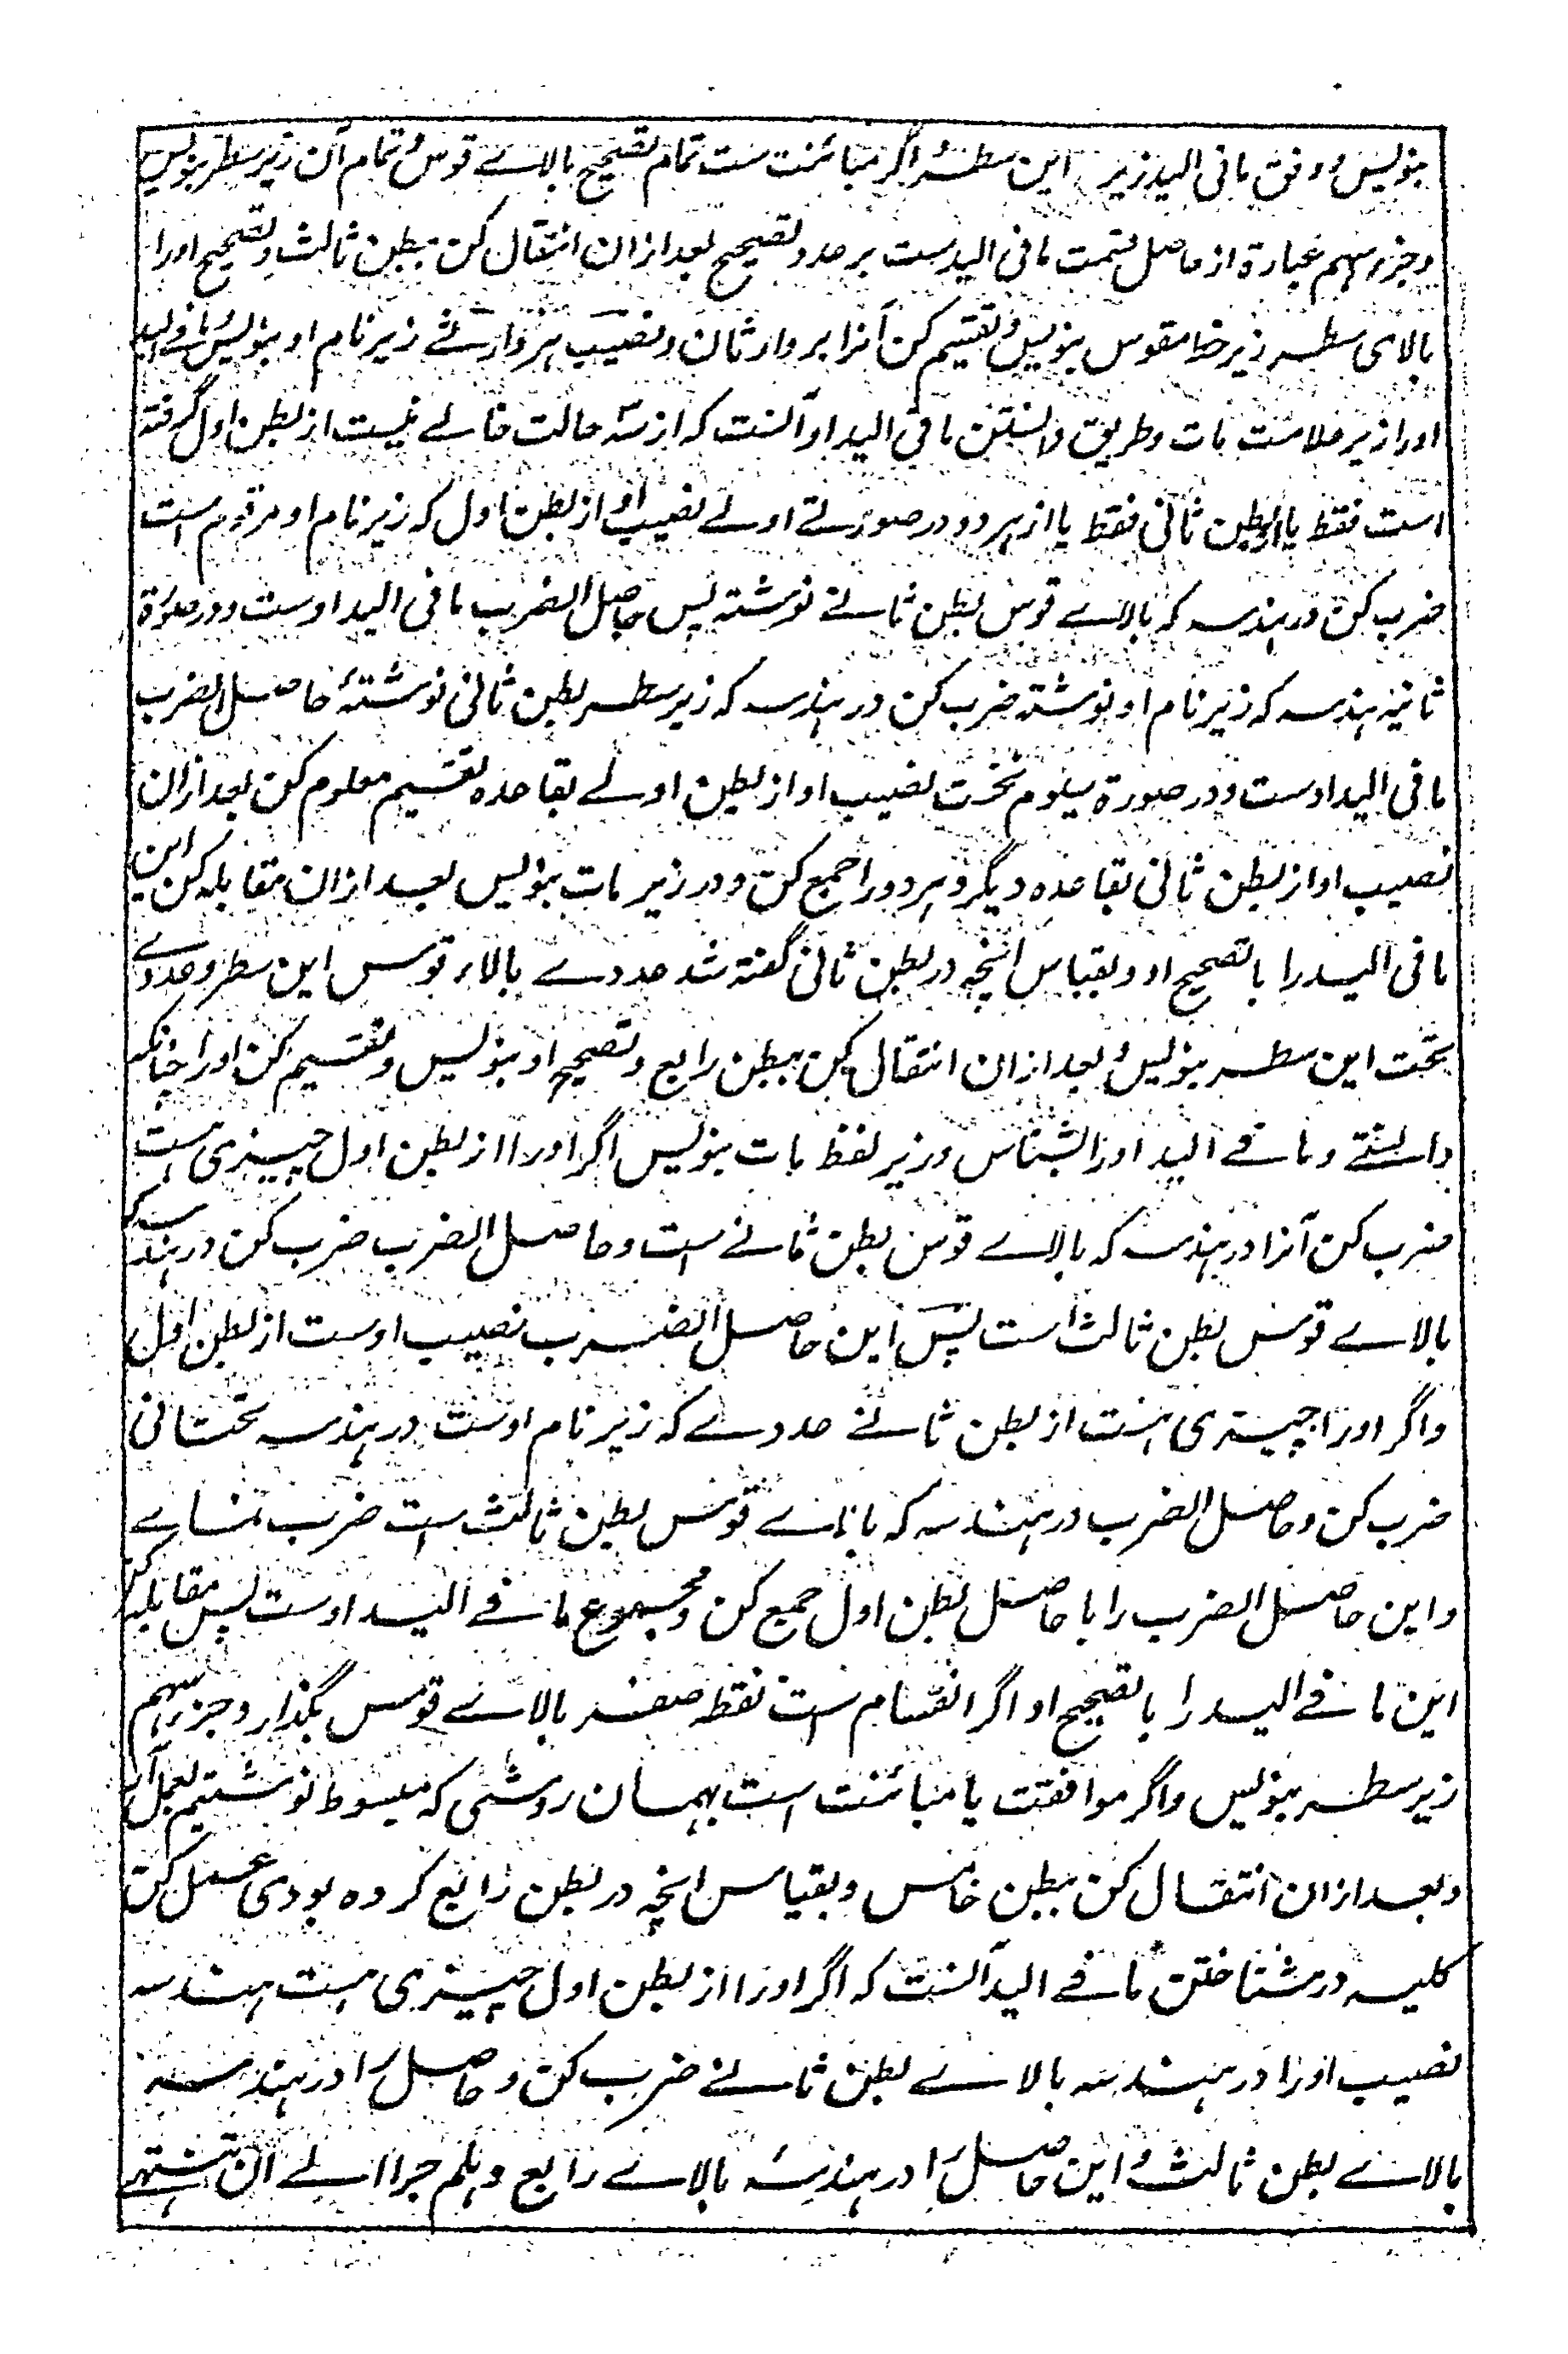 بنویس و وفق مافی الید زیر این سطر و اگر مبائنت ست تمام تصحیح بالاے قوس و تمام آن زیر سطر بنویس
و جزء سهم عبارة از حاصل قسمت مافی الید ست بر عدد تصحیح بعد ازان انتقال کن ببطن ثالث و تصحیح اورا
بالای سطر زیر خط مقوس بنویس و تقسیم کن آنرا بر وارثان و نصیب هر وارثے زیر نام او بنویس و مافی الید
اورا زیر علامت مات و طریق دانستن مافی الید او آنست که از سه حالت خالے نیست از بطن اول گرفته
است فقط یا از بطن ثانی فقط یا از هر دو در صورتے اولے نصیب او از بطن اول که زیر نام او مرقوم است
ضرب کن در هندسه که بالاے قوس بطن ثانے نوشته پس حاصل الضرب مافی الید اوست و در صورة
ثانیه هندسه که زیر نام او نوشته ضرب کن در هندسه که زیر سطر بطن ثانی نوشتهٔ حاصل الضرب
مافی الید اوست و در صورة سیوم نخست نصیب او از بطن اولے بقاعده تقسیم معلوم کن بعد ازان
نصیب او از بطن ثانی بقاعده دیگر و هر دو را جمع کن و در زیر مات بنویس بعد ازان مقابله کن این
مافی الید را با تصحیح او و بقیاس انچه در بطن ثانی گفته شد عددے بالاء قوس این سطر و عددے
تحت این سطر بنویس و بعد ازان انتقال کن ببطن رابع و تصحیح او بنویس و تقسیم کن اورا چنانکه
دانستے و مافے الید اورا بشناس و زیر لفظ مات بنویس اگر اورا از بطن اول چیزی هست
ضرب کن آنرا در هندسه که بالاے قوس بطن ثانے ست و حاصل الضرب ضرب کن در هندسه که
بالاے قوس بطن ثالث است پس این حاصل الضرب نصیب اوست از بطن اول
و اگر اورا چیزی هست از بطن ثانے عددے که زیر نام اوست در هندسه تحتانی
ضرب کن و حاصل الضرب در هندسه که بالاے قوس بطن ثالث ست ضرب نمائے
و این حاصل الضرب را با حاصل بطن اول جمع کن و مجموع مافے الید اوست پس مقابله کن
این مافے الید را با تصحیح او اگر انقسام ست نقطه صفر بالاے قوس بگذار و جزء سهم
زیر سطر بنویس و اگر موافقت یا مبائنت است بهمان روشی که مبسوط نوشتیم بعمل آر
و بعد ازان انتقال کن ببطن خامس و بقیاس انچه در بطن رابع کرده بودی عمل کن
کلیه در شناختن مافے الید آنست که اگر اورا از بطن اول چیزی هست هندسه
نصیب اورا در هندسه بالاے بطن ثانے ضرب کن و حاصل را در هندسه
بالاے بطن ثالث و این حاصل را در هندسه بالاے رابع و هلم جرا الے ان تنتهے